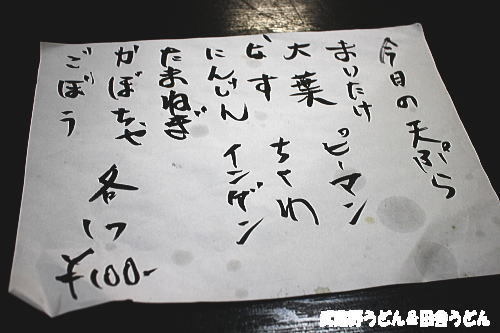 今日の天ぷら
まいたけ ピーマン
大葉 ちくわ
なす インゲン
にんじん
たまねぎ
かぼちゃ
ごぼう
各
1つ
¥100-
武蔵野うどん＆田舎うどん